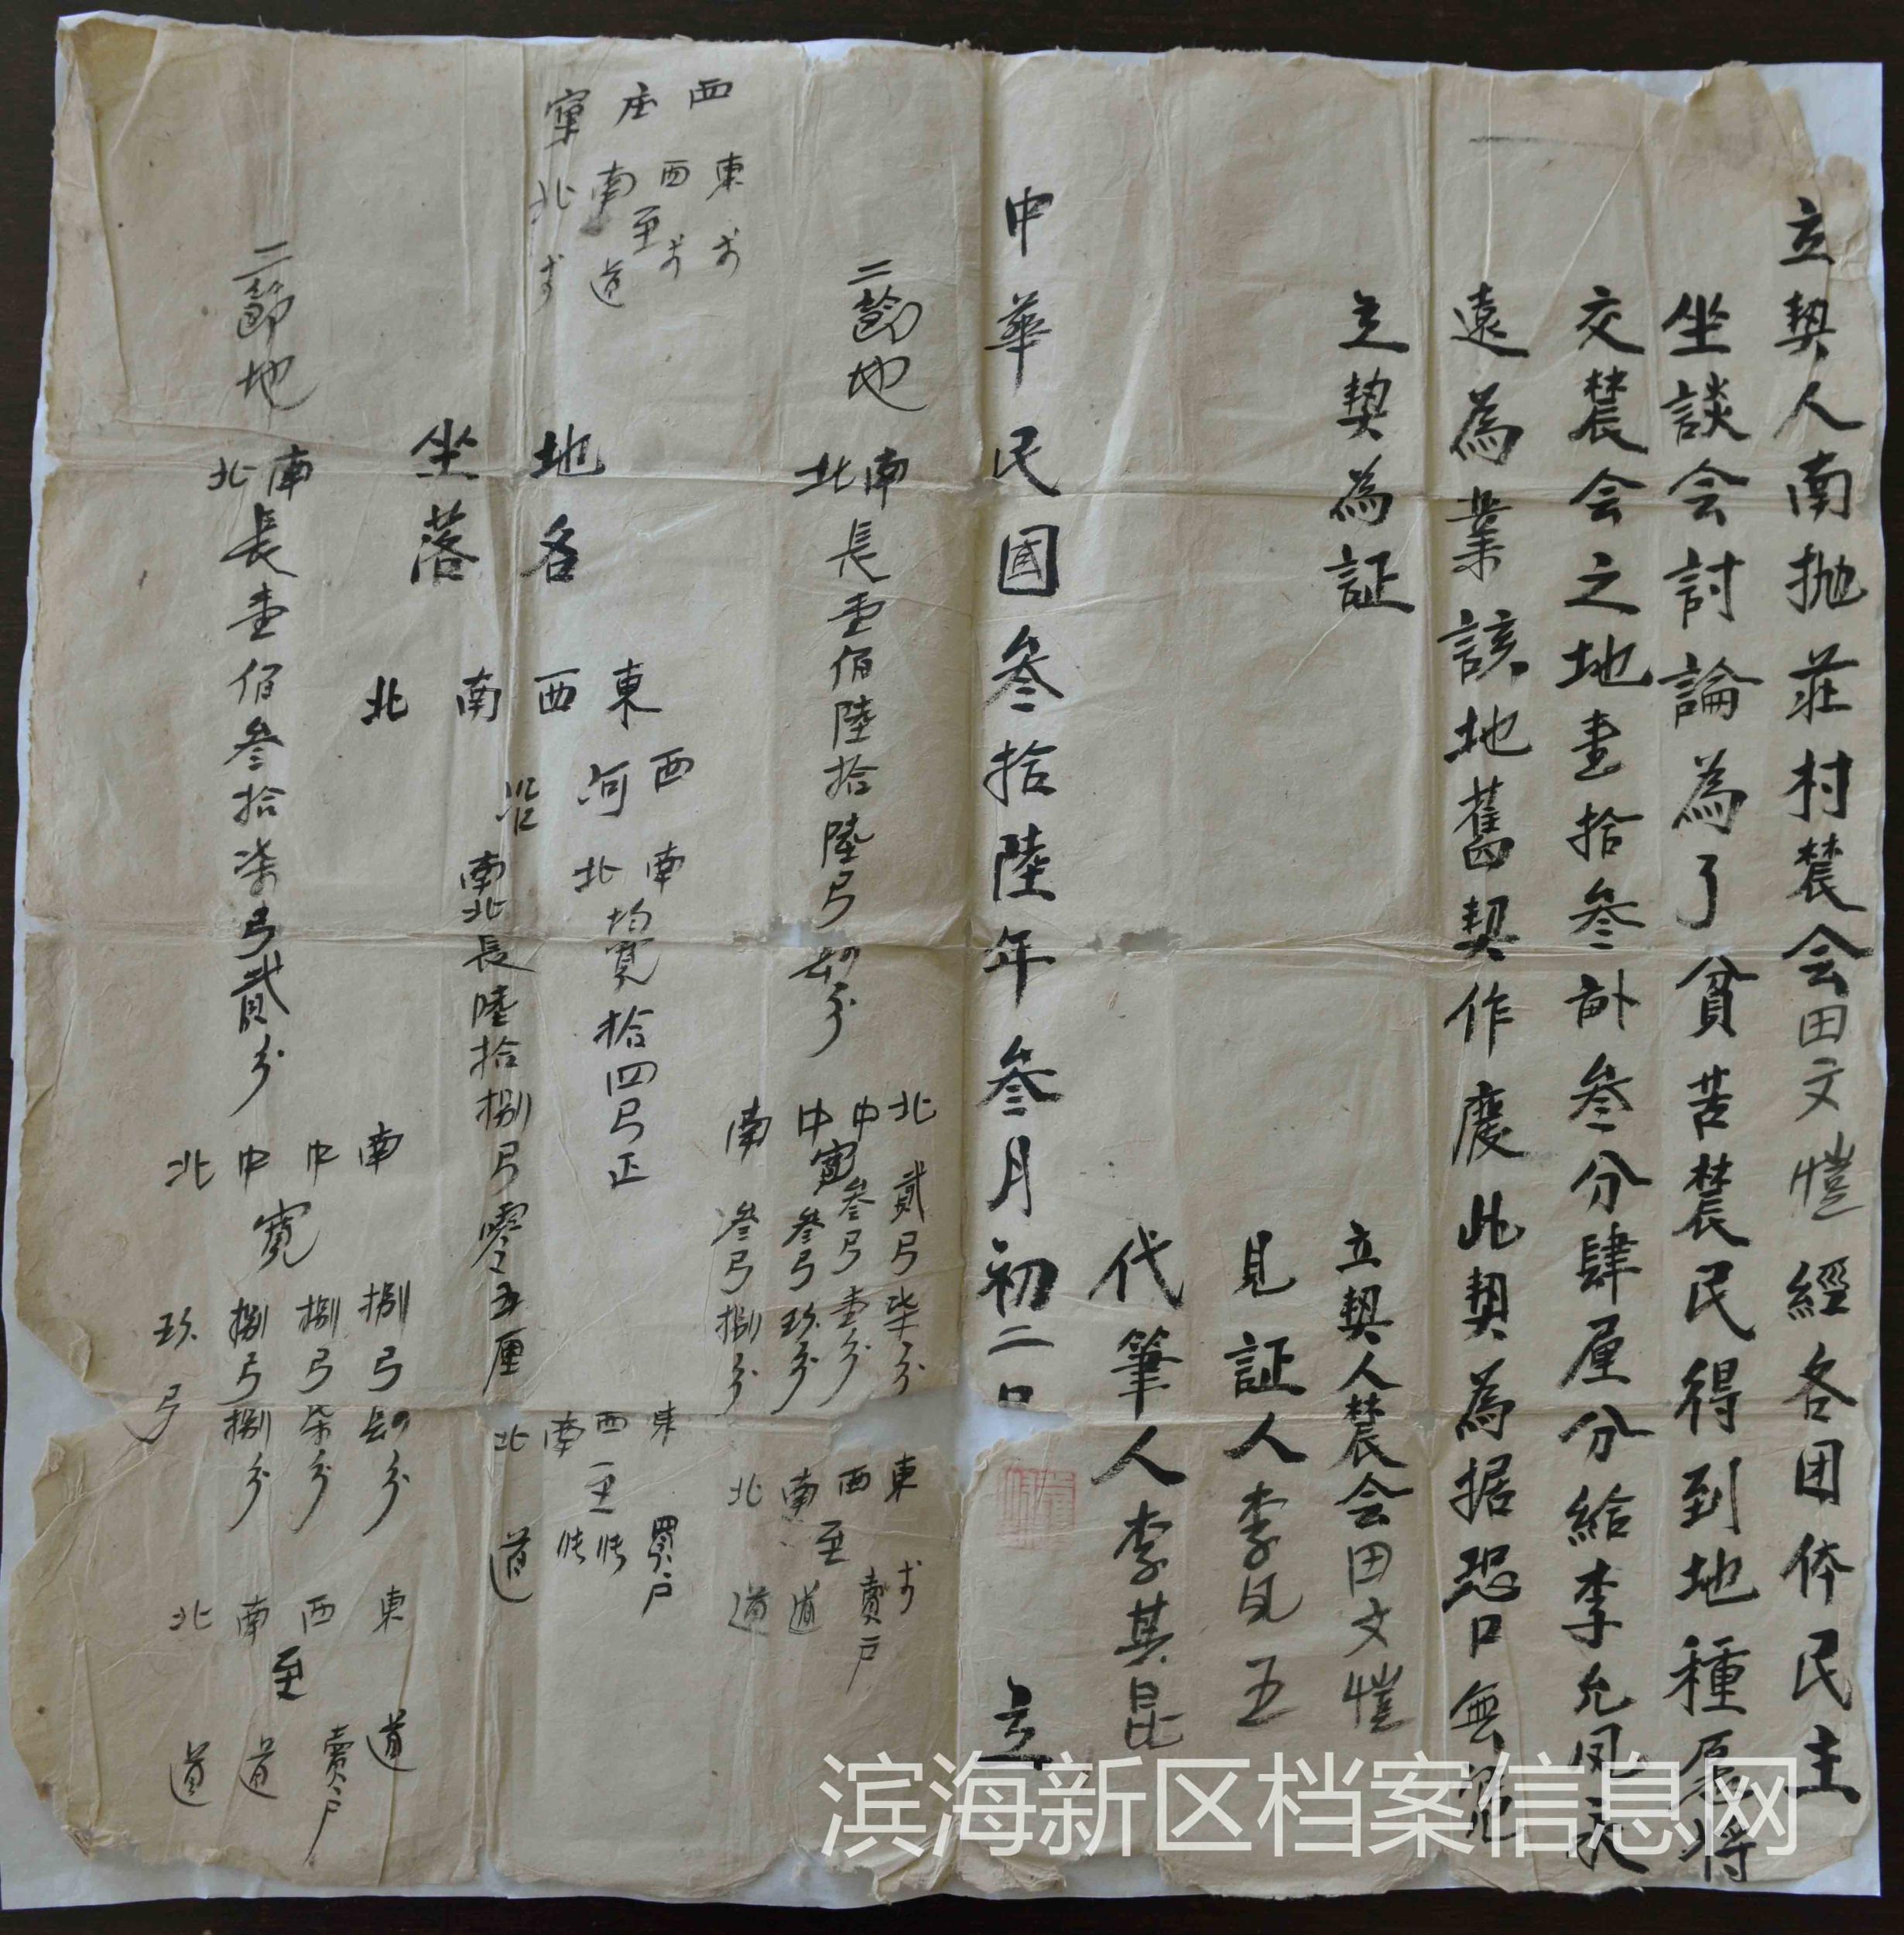 立契人南抛莊村農会田文愷經各团体民主
坐談会討論為了貧苦農民得到地種原將
交農会之地壹拾叁畝叁分肆厘分給李允凤永
遠為業該地舊契作废此契為据恐口無凭
立契為証
立契人農会田文愷
見証人李見五
代筆人李其昆
中華民國叁拾陸年叁月初二日 立
二節地 南北長壹佰陸拾陸弓 分
北 貳弓柒分
中 叁弓壹分
中寬 叁弓玖分
南 叁弓捌分
東
西 賣户
南 至 道
北 道
西
庄
東
西
南 至 道
北
地各
坐落
東
西
南
北
西
河
南北均寬拾四弓正
沿
南北長陸拾捌弓零五厘
東 買户
西
南 至
北 道
二節地 南北長壹佰叁拾柒弓貳分
南 捌弓 分
中 捌弓柒分
中 寬 捌弓捌分
北 玖弓
東 道
西 賣户
南 至 道
北 道
滨海新区档案信息网